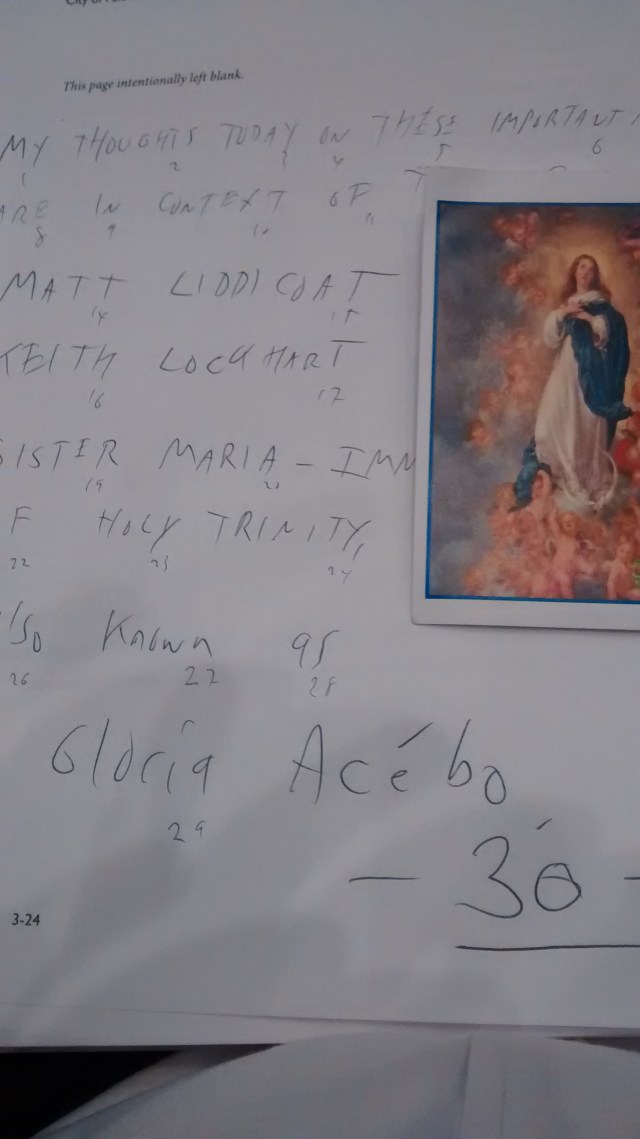 City of
This page intentionally left blank.
MY THOUGHTS TODAY ON THESE IMPORTANT
1 2 3 4 5 6
ARE IN CONTEXT OF
8 9 10 11
MATT LIDDICOAT
14 15
KEITH LOCKHART
16 17
SISTER MARIA - IMM
19 20
F HOLY TRINITY,
22 23 24
lso Known as
26 27 28
Gloria Acébo
29
- 30 -
3-24